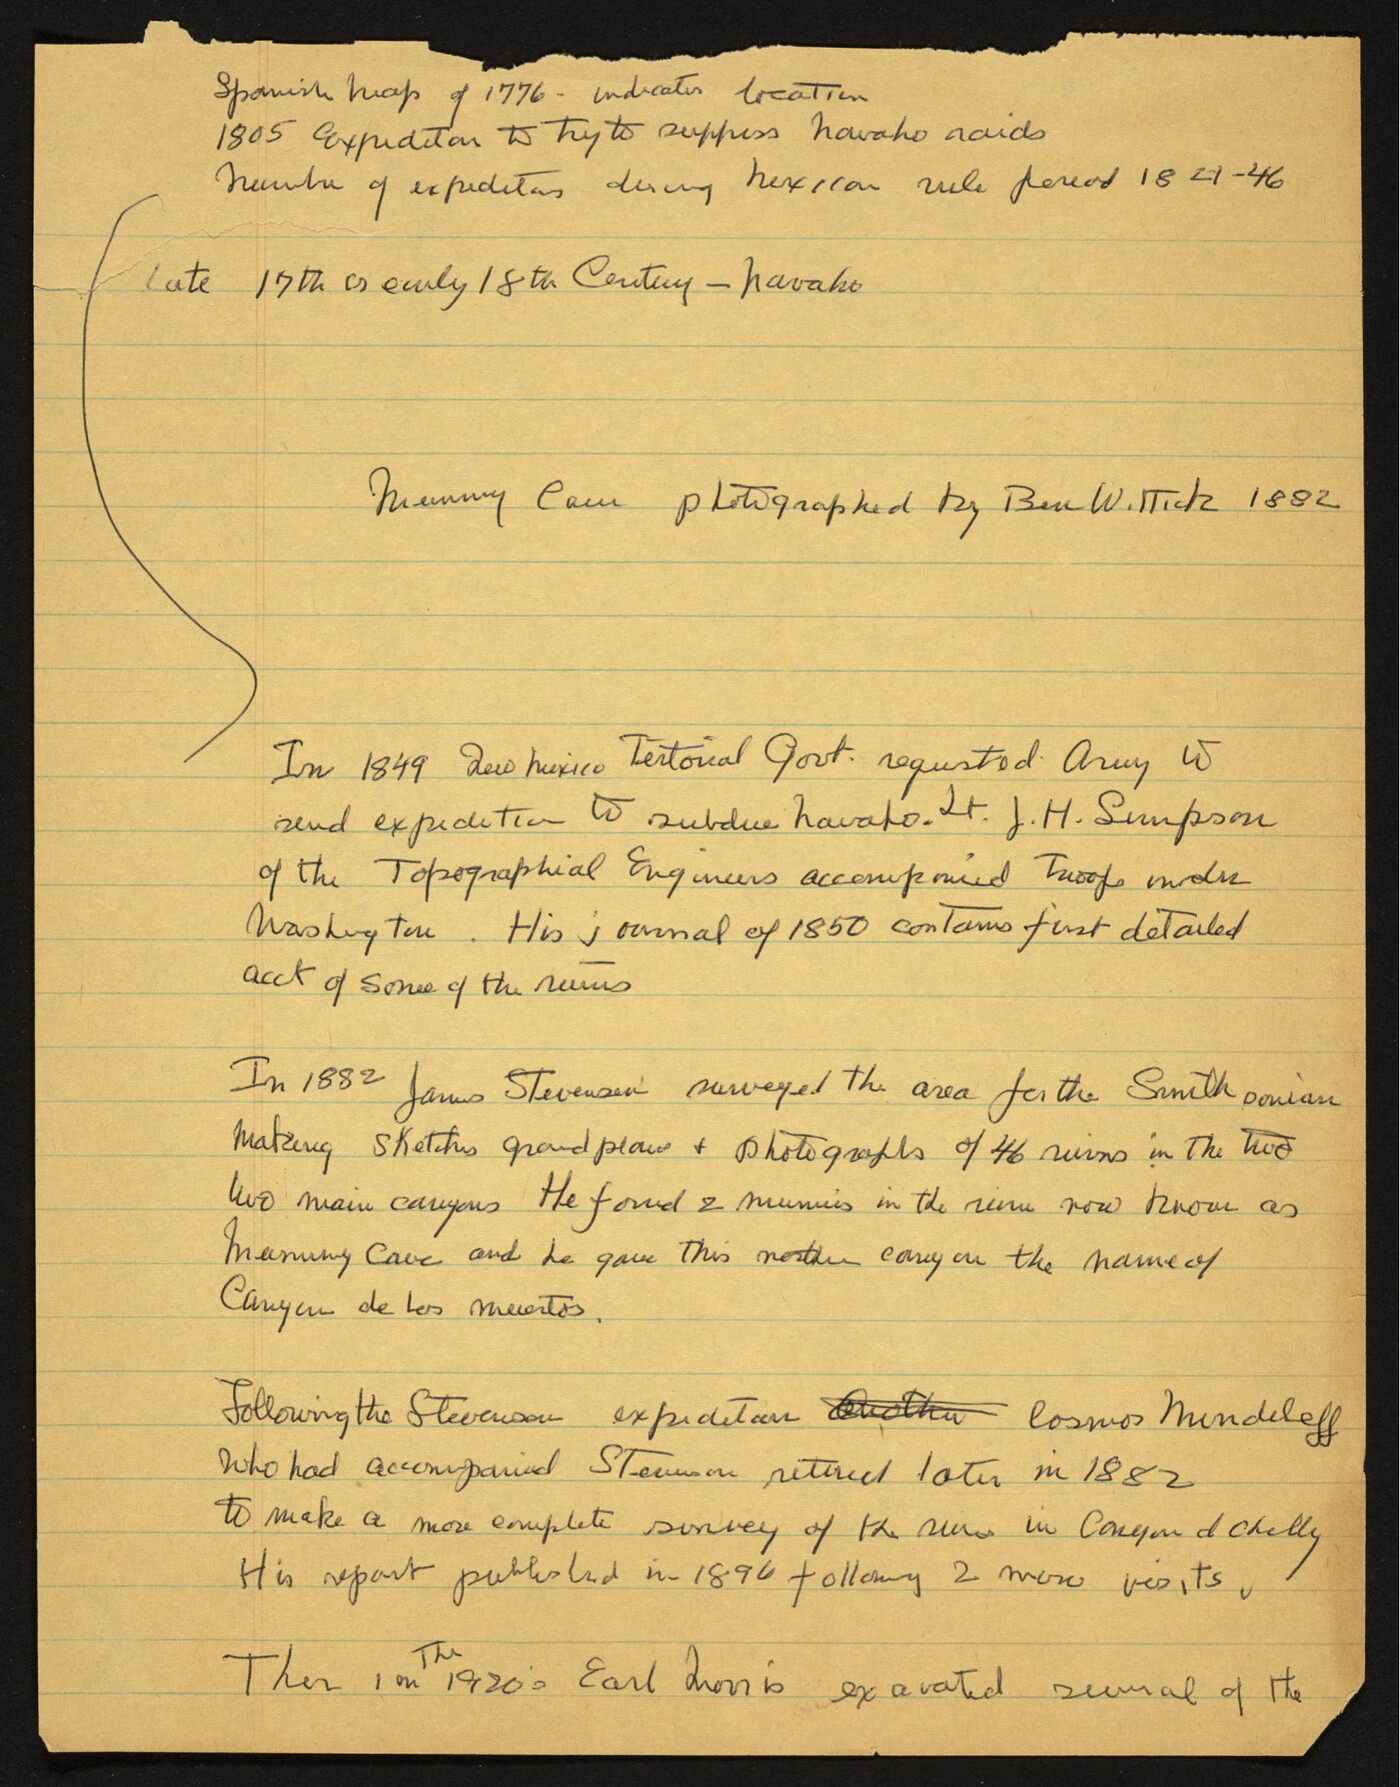 Spanish Map of 1776 - indicates location
1805 Expedition to try to suppress Navaho raids
Number of expeditions during Mexican rule period 1821-46
Late 17th or early 18th Century - Navaho
Mummy Cave photographed by Ben Wittick 1882
In 1849 New Mexico Teritorial Govt. requested Army to
send expedition to subdue Navaho. Lt. J. H. Simpson
of the Topographial Engineers accompanied troops under
Washington. His journal of 1850 contains first detailed
acct of some of the ruins
In 1882 James Stevenson surveyed the area for the Smithsonian
Making sketches ground plans + photographs of 46 ruins in the two
two main canyons He found 2 mummies in the ruin now known as
Mummy Cave and he gave this northern canyon the name of
Canyon de los Muertos.
Following the Stevenson expedition Another Cosmos Mindeleff
who had accompanied Stevenson retired later in 1882
to make a more complete survey of the ruins in Canyon d Chelly
His report published in 1896 following 2 more visits.
Then in The 1920's Earl Morris exavated several of the